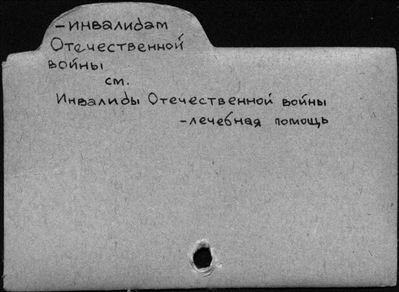 -инвалидам
Отечественной
войны
см.
Инвалиды Отечественной войны
-лечебная помощь